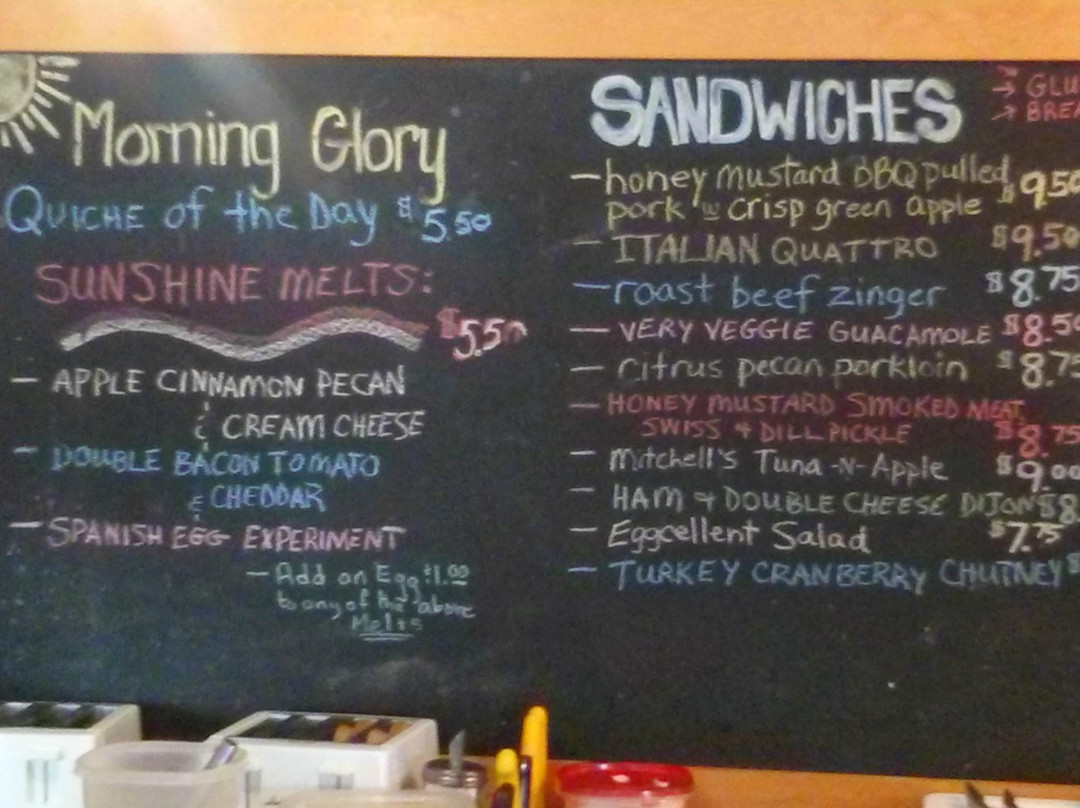 Morning Glory
QUICHE of the Day $5.50
SUNSHINE MELTS:
$5.50
- APPLE CINNAMON PECAN
& CREAM CHEESE
- DOUBLE BACON TOMATO
& CHEDDAR
- SPANISH EGG EXPERIMENT
- Add an Egg $1.00
to any of the above
Melts
SANDWICHES
→ GLU
→ BREA
- honey mustard BBQ pulled
pork w crisp green apple $9.50
- ITALIAN QUATTRO $9.50
- roast beef zinger $8.75
- VERY VEGGIE GUACAMOLE $8.50
- citrus pecan porkloin $8.75
- HONEY MUSTARD SMOKED MEAT,
SWISS & DILL PICKLE $8.75
- Mitchell's Tuna -N- Apple $9.00
- HAM & DOUBLE CHEESE DIJON $8.
- Eggcellent Salad $7.75
- TURKEY CRANBERRY CHUTNEY $